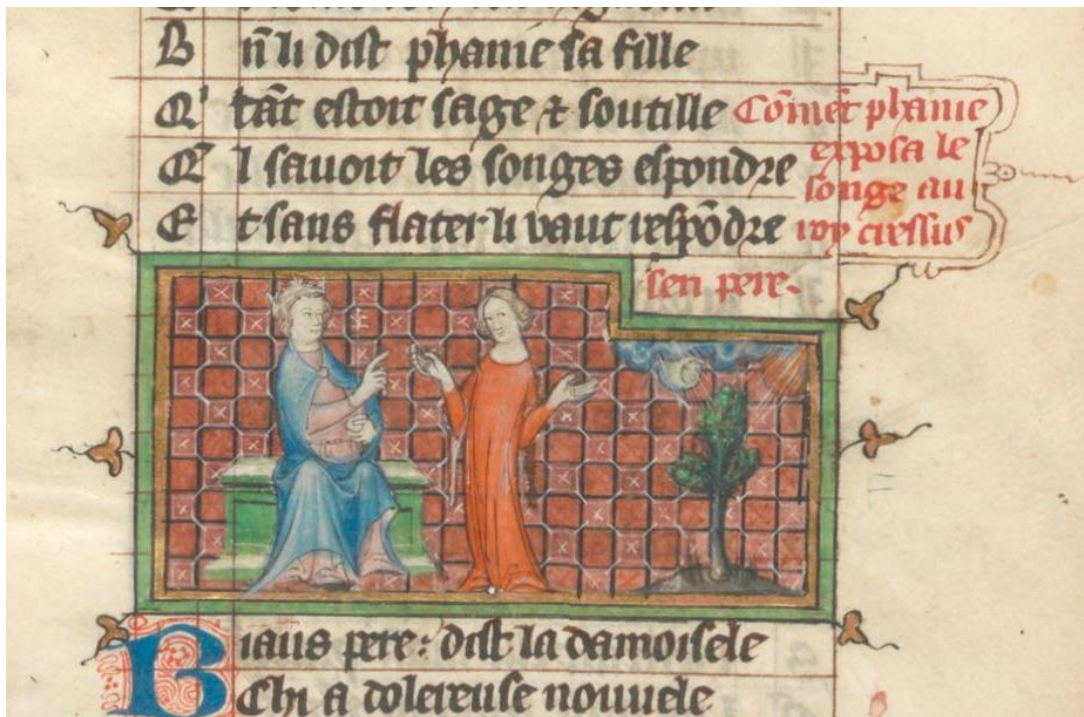 B n̄ li dist phanie sa fille
Q' tāt estoit sage ⁊ soutille
Q̄ l sauoit les songes espondre
E t sans flater li vaut respōdre
Cōmēt phanie
exposa le
songe au
roy cressus
sen pere.
Biaus pere: dist la damoisele
Chi a dolereuse nouuele